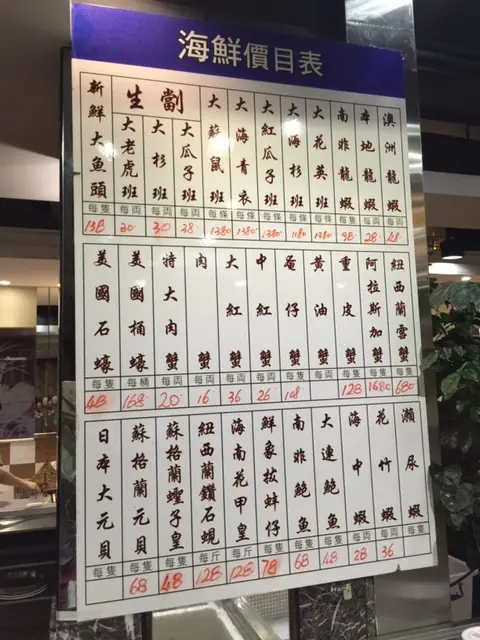 海鮮價目表
澳洲龍蝦 每両 28
本地龍蝦 每両 28
南非龍蝦 每隻 98
大花英班 每條 1380
大海杉班 每條 1180
大紅瓜子班 每條 1380
大海青衣 每條 1380
大蘇鼠班 每條 1380
生劏
大瓜子班 每両 38
大杉班 每両 30
大老虎班 每両 30
新鮮大魚頭 每隻 138
紐西蘭雪蟹 每隻 680
阿拉斯加蟹 每隻 1680
重皮蟹 每隻 128
黃油蟹
奄仔蟹 108
中紅蟹 26
大紅蟹 36
肉蟹 16
特大肉蟹 每両 20
美國桶蠔 每桶 168
美國石蠔 每隻 48
瀨尿蝦
花竹蝦 36
海中蝦 每両 28
大連鮑魚 每隻 48
南非鮑魚 每隻 68
鮮象拔蚌仔 每隻 78
海南花甲皇 每斤 128
紐西蘭鑽石蜆 每斤 128
蘇格蘭蟶子皇 每隻 48
蘇格蘭元貝 每隻 68
日本大元貝 每隻